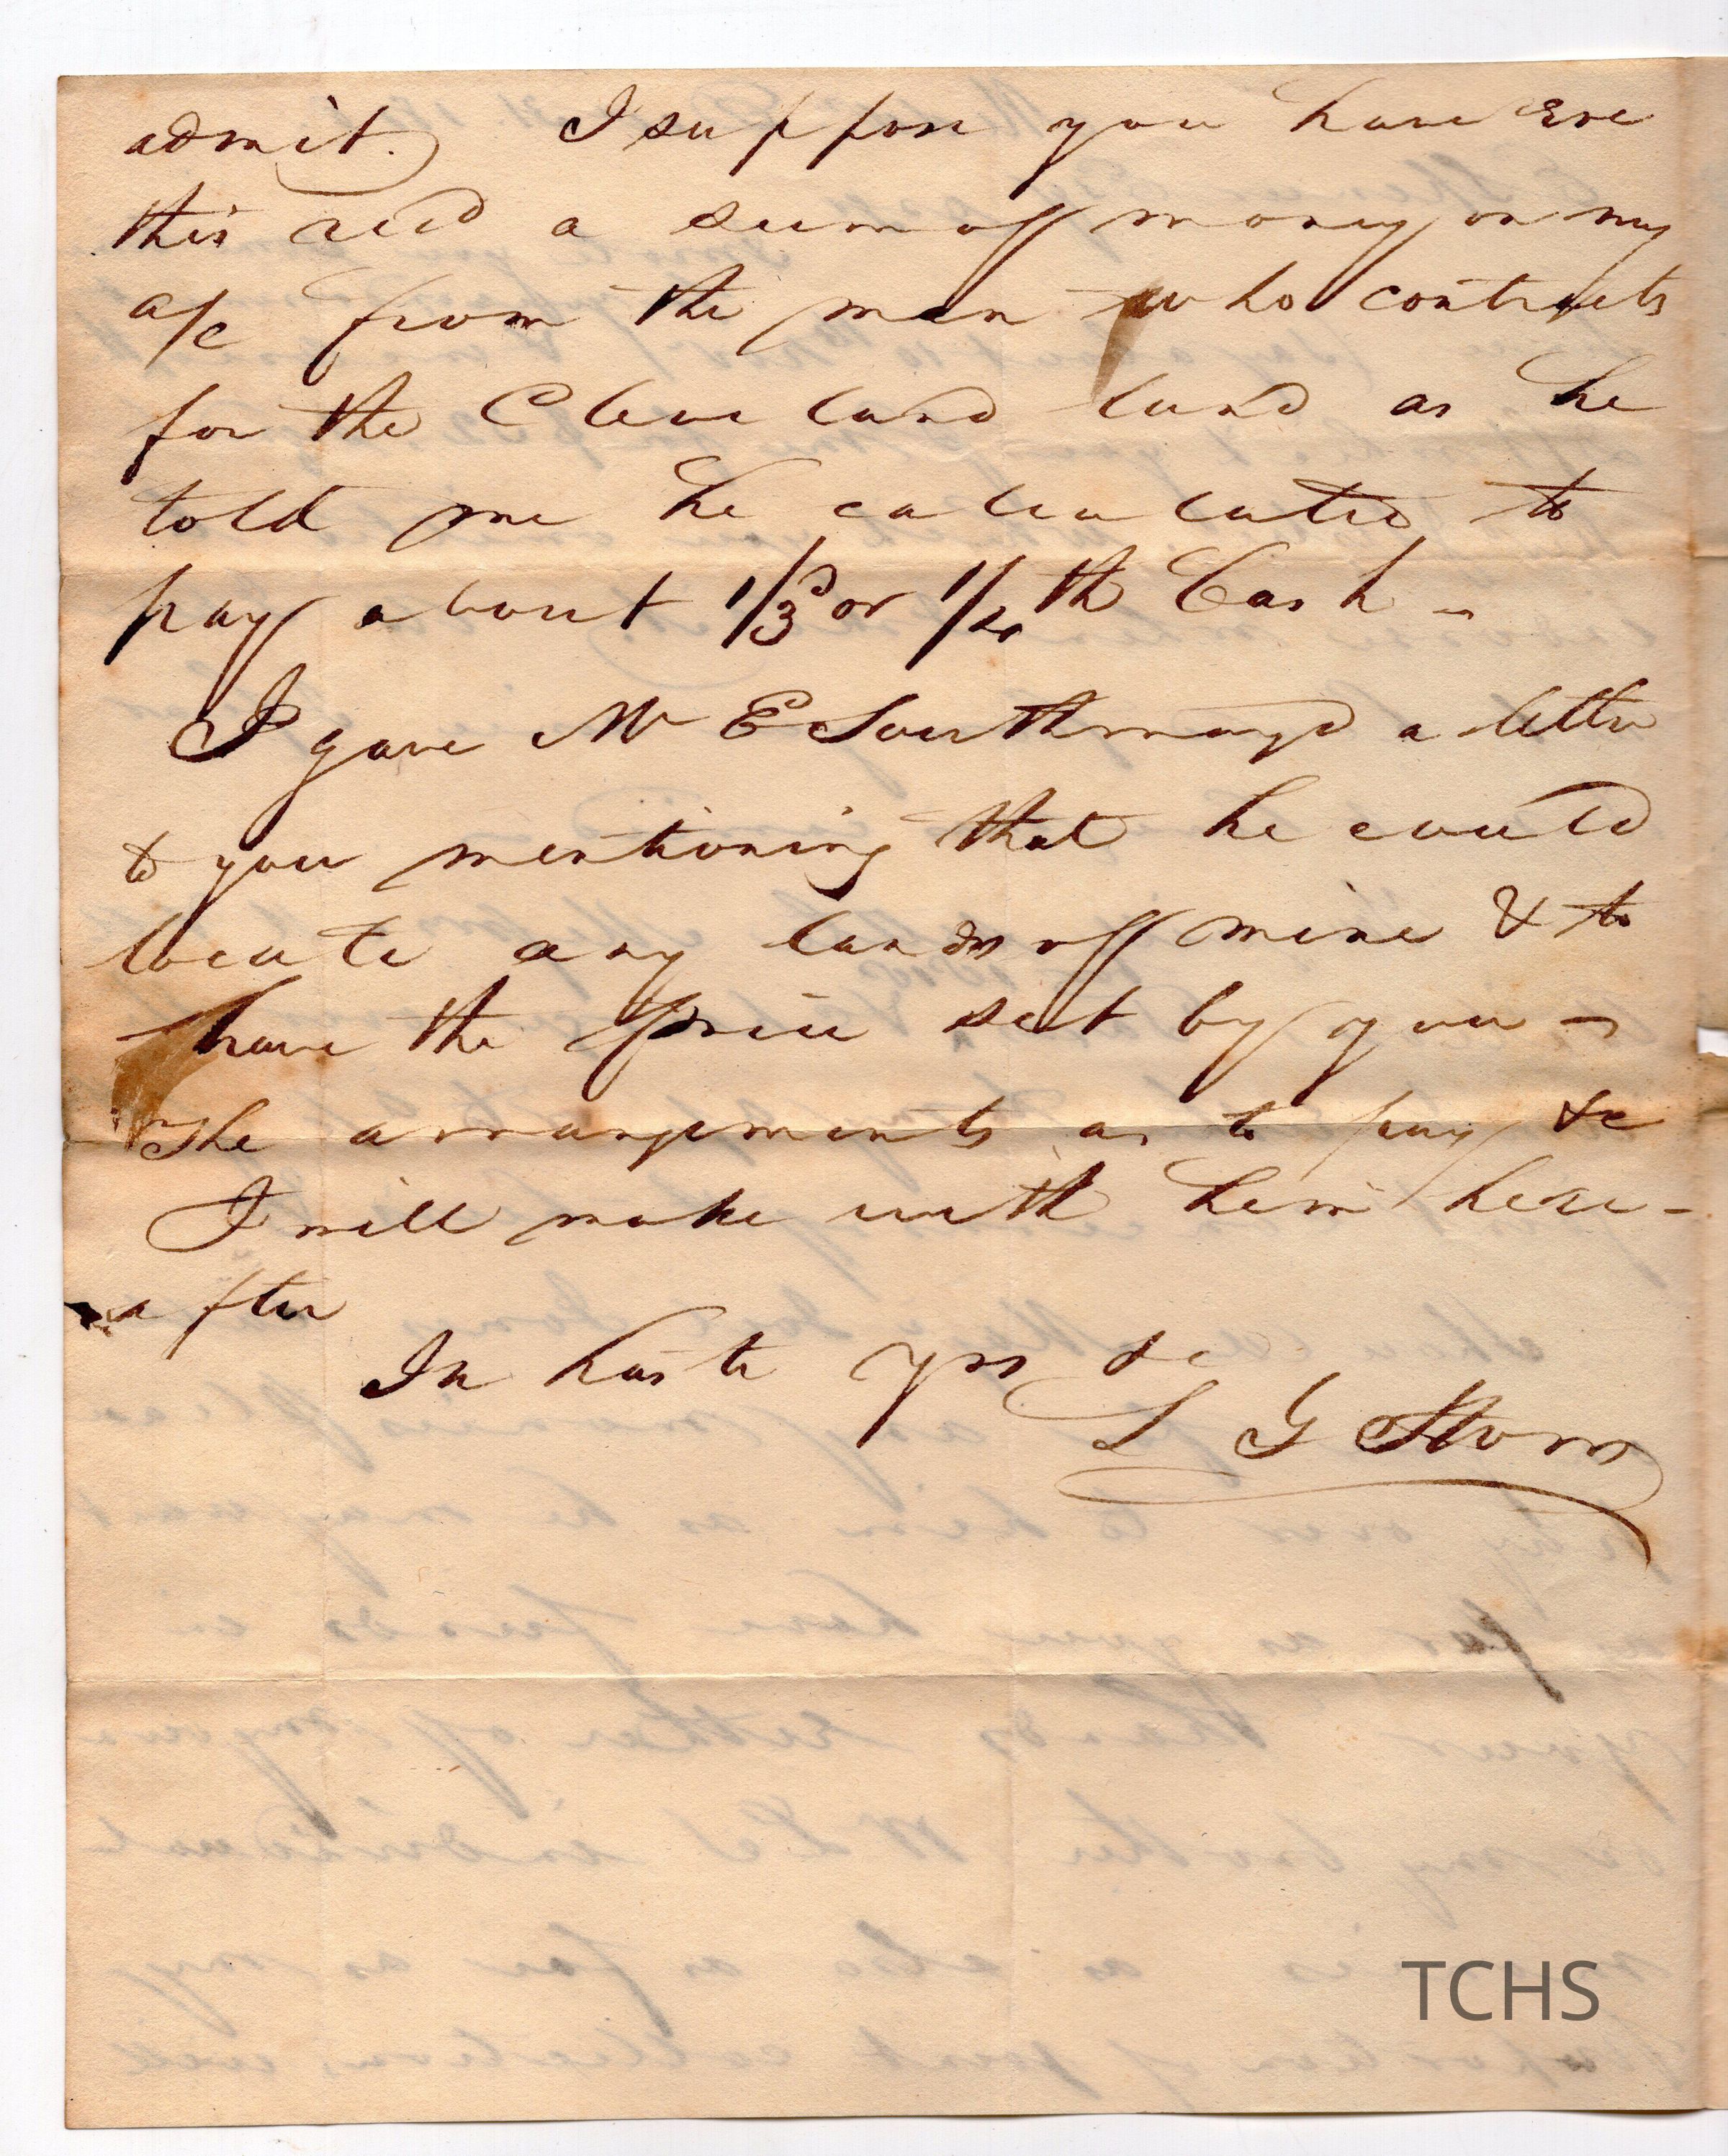 admit.) I suppose you have Ere
this recd a sum off money on my
a/c from the man who contracts
for the Cleveland land as he
told me he calculated to
pay about 1/3d or 1/4th Cash -
I gave Mr E Southmayd a letter
to you mentioning that he could
locate any lands off mine & to
have the price set by you -
The arrangements as to pay &c
I will make with him here-
after
In haste yrs &c
L G Storrs
TCHS